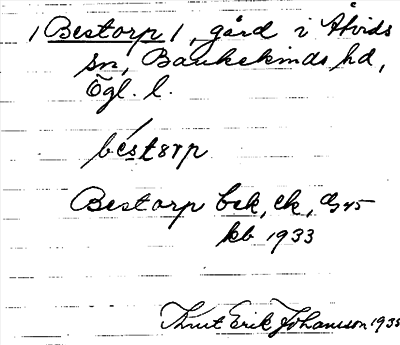 /Bestorp/, gård i Åtvids
sn, Bankekinds hd,
Ögl. l.
béstsrp
Bestorp bek, ek, G45
kb 1933
Knut Erik Johansson 1935